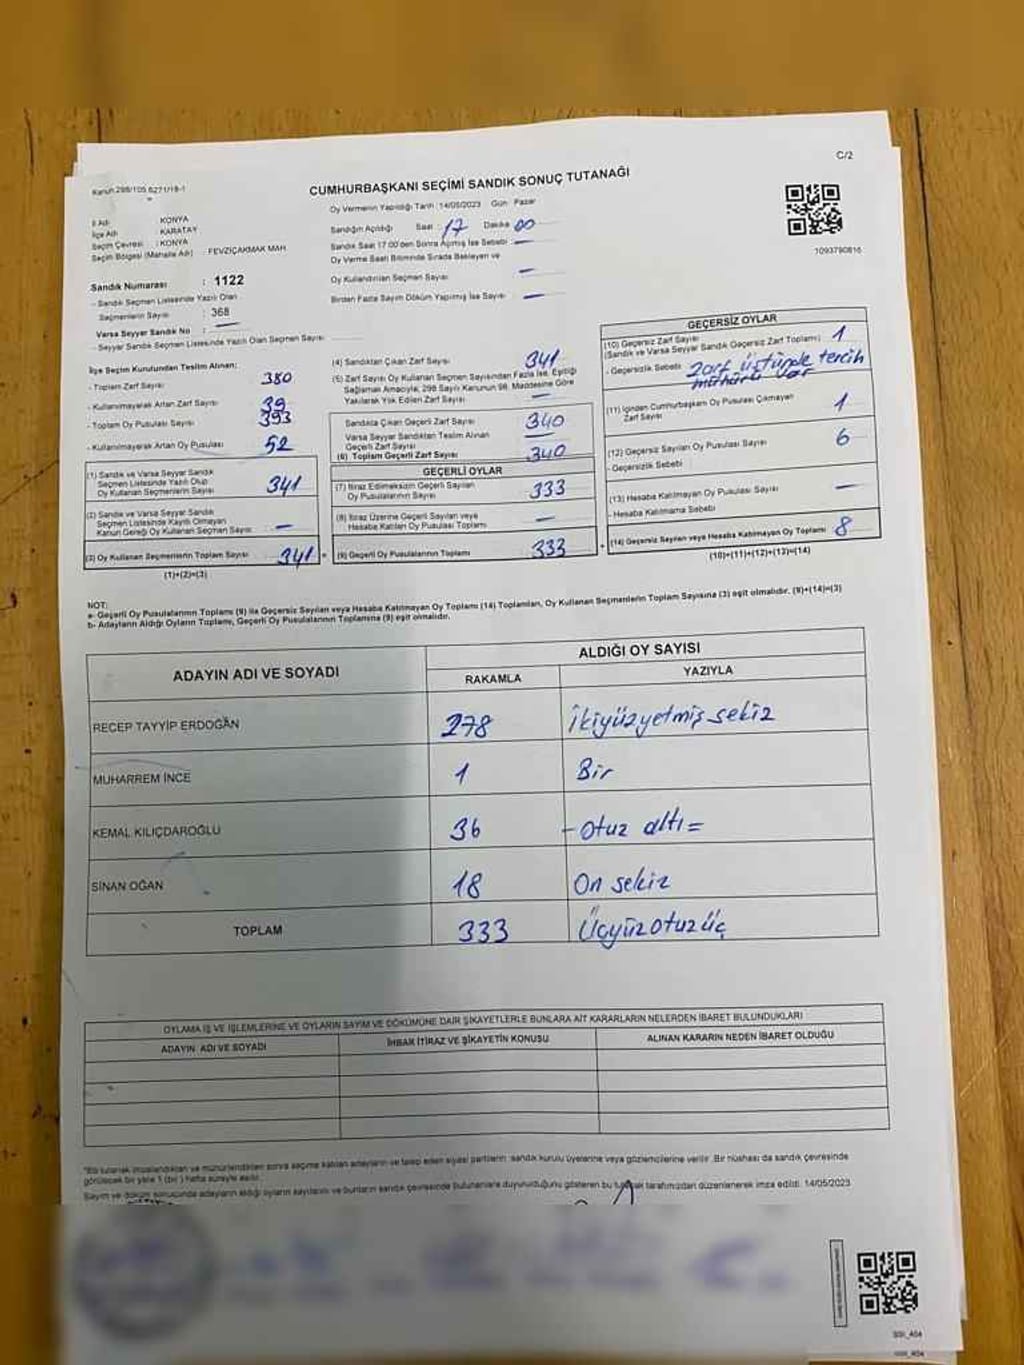 C/2
Kanun:298/105 6271/18-1
CUMHURBAŞKANI SEÇİMİ SANDIK SONUÇ TUTANAĞI
İl Adı : KONYA
İlçe Adı : KARATAY
Seçim Çevresi : KONYA
Seçim Bölgesi (Mahalle Adı) : FEVZİÇAKMAK MAH.
Sandık Numarası : 1122
- Sandık Seçmen Listesinde Yazılı Olan
Seçmenlerin Sayısı : 368
Varsa Seyyar Sandık No : —
- Seyyar Sandık Seçmen Listesinde Yazılı Olan Seçmen Sayısı :
Oy Vermenin Yapıldığı Tarih :14/05/2023 Gün: Pazar
Sandığın Açıldığı Saat : 17 Dakika 00
Sandık Saat 17:00'den Sonra Açılmış İse Sebebi : —
Oy Verme Saati Bitiminde Sırada Bekleyen ve
Oy Kullandırılan Seçmen Sayısı —
Birden Fazla Sayım Döküm Yapılmış İse Sayısı : —
1093790816
İlçe Seçim Kurulundan Teslim Alınan:
- Toplam Zarf Sayısı 380
- Kullanılmayarak Artan Zarf Sayısı 39
- Toplam Oy Pusulası Sayısı 393
- Kullanılmayarak Artan Oy Pusulası 52
(1) Sandık ve Varsa Seyyar Sandık
Seçmen Listesinde Yazılı Olup
Oy Kullanan Seçmenlerin Sayısı 341
(2) Sandık ve Varsa Seyyar Sandık
Seçmen Listesinde Kayıtlı Olmayan
Kanun Gereği Oy Kullanan Seçmen Sayısı —
(3) Oy Kullanan Seçmenlerin Toplam Sayısı 341 =
(1)+(2)=(3)
(4) Sandıktan Çıkan Zarf Sayısı 341
(5) Zarf Sayısı Oy Kullanan Seçmen Sayısından Fazla İse, Eşitliği
Sağlamak Amacıyla, 298 Sayılı Kanunun 98. Maddesine Göre
Yakılarak Yok Edilen Zarf Sayısı —
Sandıkta Çıkan Geçerli Zarf Sayısı 340
Varsa Seyyar Sandıktan Teslim Alınan
Geçerli Zarf Sayısı —
(6) Toplam Geçerli Zarf Sayısı 340
GEÇERLİ OYLAR
(7) İtiraz Edilmeksizin Geçerli Sayılan
Oy Pusulalarının Sayısı 333
(8) İtiraz Üzerine Geçerli Sayılan veya
Hesaba Katılan Oy Pusulası Toplamı —
(9) Geçerli Oy Pusulalarının Toplamı 333 +
GEÇERSİZ OYLAR
(10) Geçersiz Zarf Sayısı
(Sandık ve Varsa Seyyar Sandık Geçersiz Zarf Toplamı) : 1
- Geçersizlik Sebebi : Zarf üstünde tercih
mühürü var
(11) İçinden Cumhurbaşkanı Oy Pusulası Çıkmayan
Zarf Sayısı 1
(12) Geçersiz Sayılan Oy Pusulası Sayısı 6
- Geçersizlik Sebebi
(13) Hesaba Katılmayan Oy Pusulası Sayısı —
- Hesaba Katılmama Sebebi
(14) Geçersiz Sayılan veya Hesaba Katılmayan Oy Toplamı 8
(10)+(11)+(12)+(13)=(14)
NOT:
a- Geçerli Oy Pusulalarının Toplamı (9) ile Geçersiz Sayılan veya Hesaba Katılmayan Oy Toplamı (14) Toplamları, Oy Kullanan Seçmenlerin Toplam Sayısına (3) eşit olmalıdır. (9)+(14)=(3)
b- Adayların Aldığı Oyların Toplamı, Geçerli Oy Pusulalarının Toplamına (9) eşit olmalıdır.
ADAYIN ADI VE SOYADI ALDIĞI OY SAYISI
RAKAMLA YAZIYLA
RECEP TAYYİP ERDOĞAN 278 İkiyüzyetmiş sekiz
MUHARREM İNCE 1 Bir
KEMAL KILIÇDAROĞLU 36 - otuz altı =
SİNAN OĞAN 18 On sekiz
TOPLAM 333 Üçyüzotuzüç
OYLAMA İŞ VE İŞLEMLERİNE VE OYLARIN SAYIM VE DÖKÜMÜNE DAİR ŞİKAYETLERLE BUNLARA AİT KARARLARIN NELERDEN İBARET BULUNDUKLARI
ADAYIN ADI VE SOYADI İHBAR İTİRAZ VE ŞİKAYETİN KONUSU ALINAN KARARIN NEDEN İBARET OLDUĞU
*Bu tutanak imzalandıktan ve mühürlendikten sonra seçime katılan adayların ve talep eden siyasi partilerin sandık kurulu üyelerine veya gözlemcilerine verilir. Bir nüshası da sandık çevresinde
görülecek bir yere 1 (bir) hafta süreyle asılır.
Sayım ve döküm sonucunda adayların aldığı oyların sayılarını ve bunların sandık çevresinde bulunanlara duyurulduğunu gösteren bu tutanak tarafımızdan düzenlenerek imza edildi. 14/05/2023
SSI_404